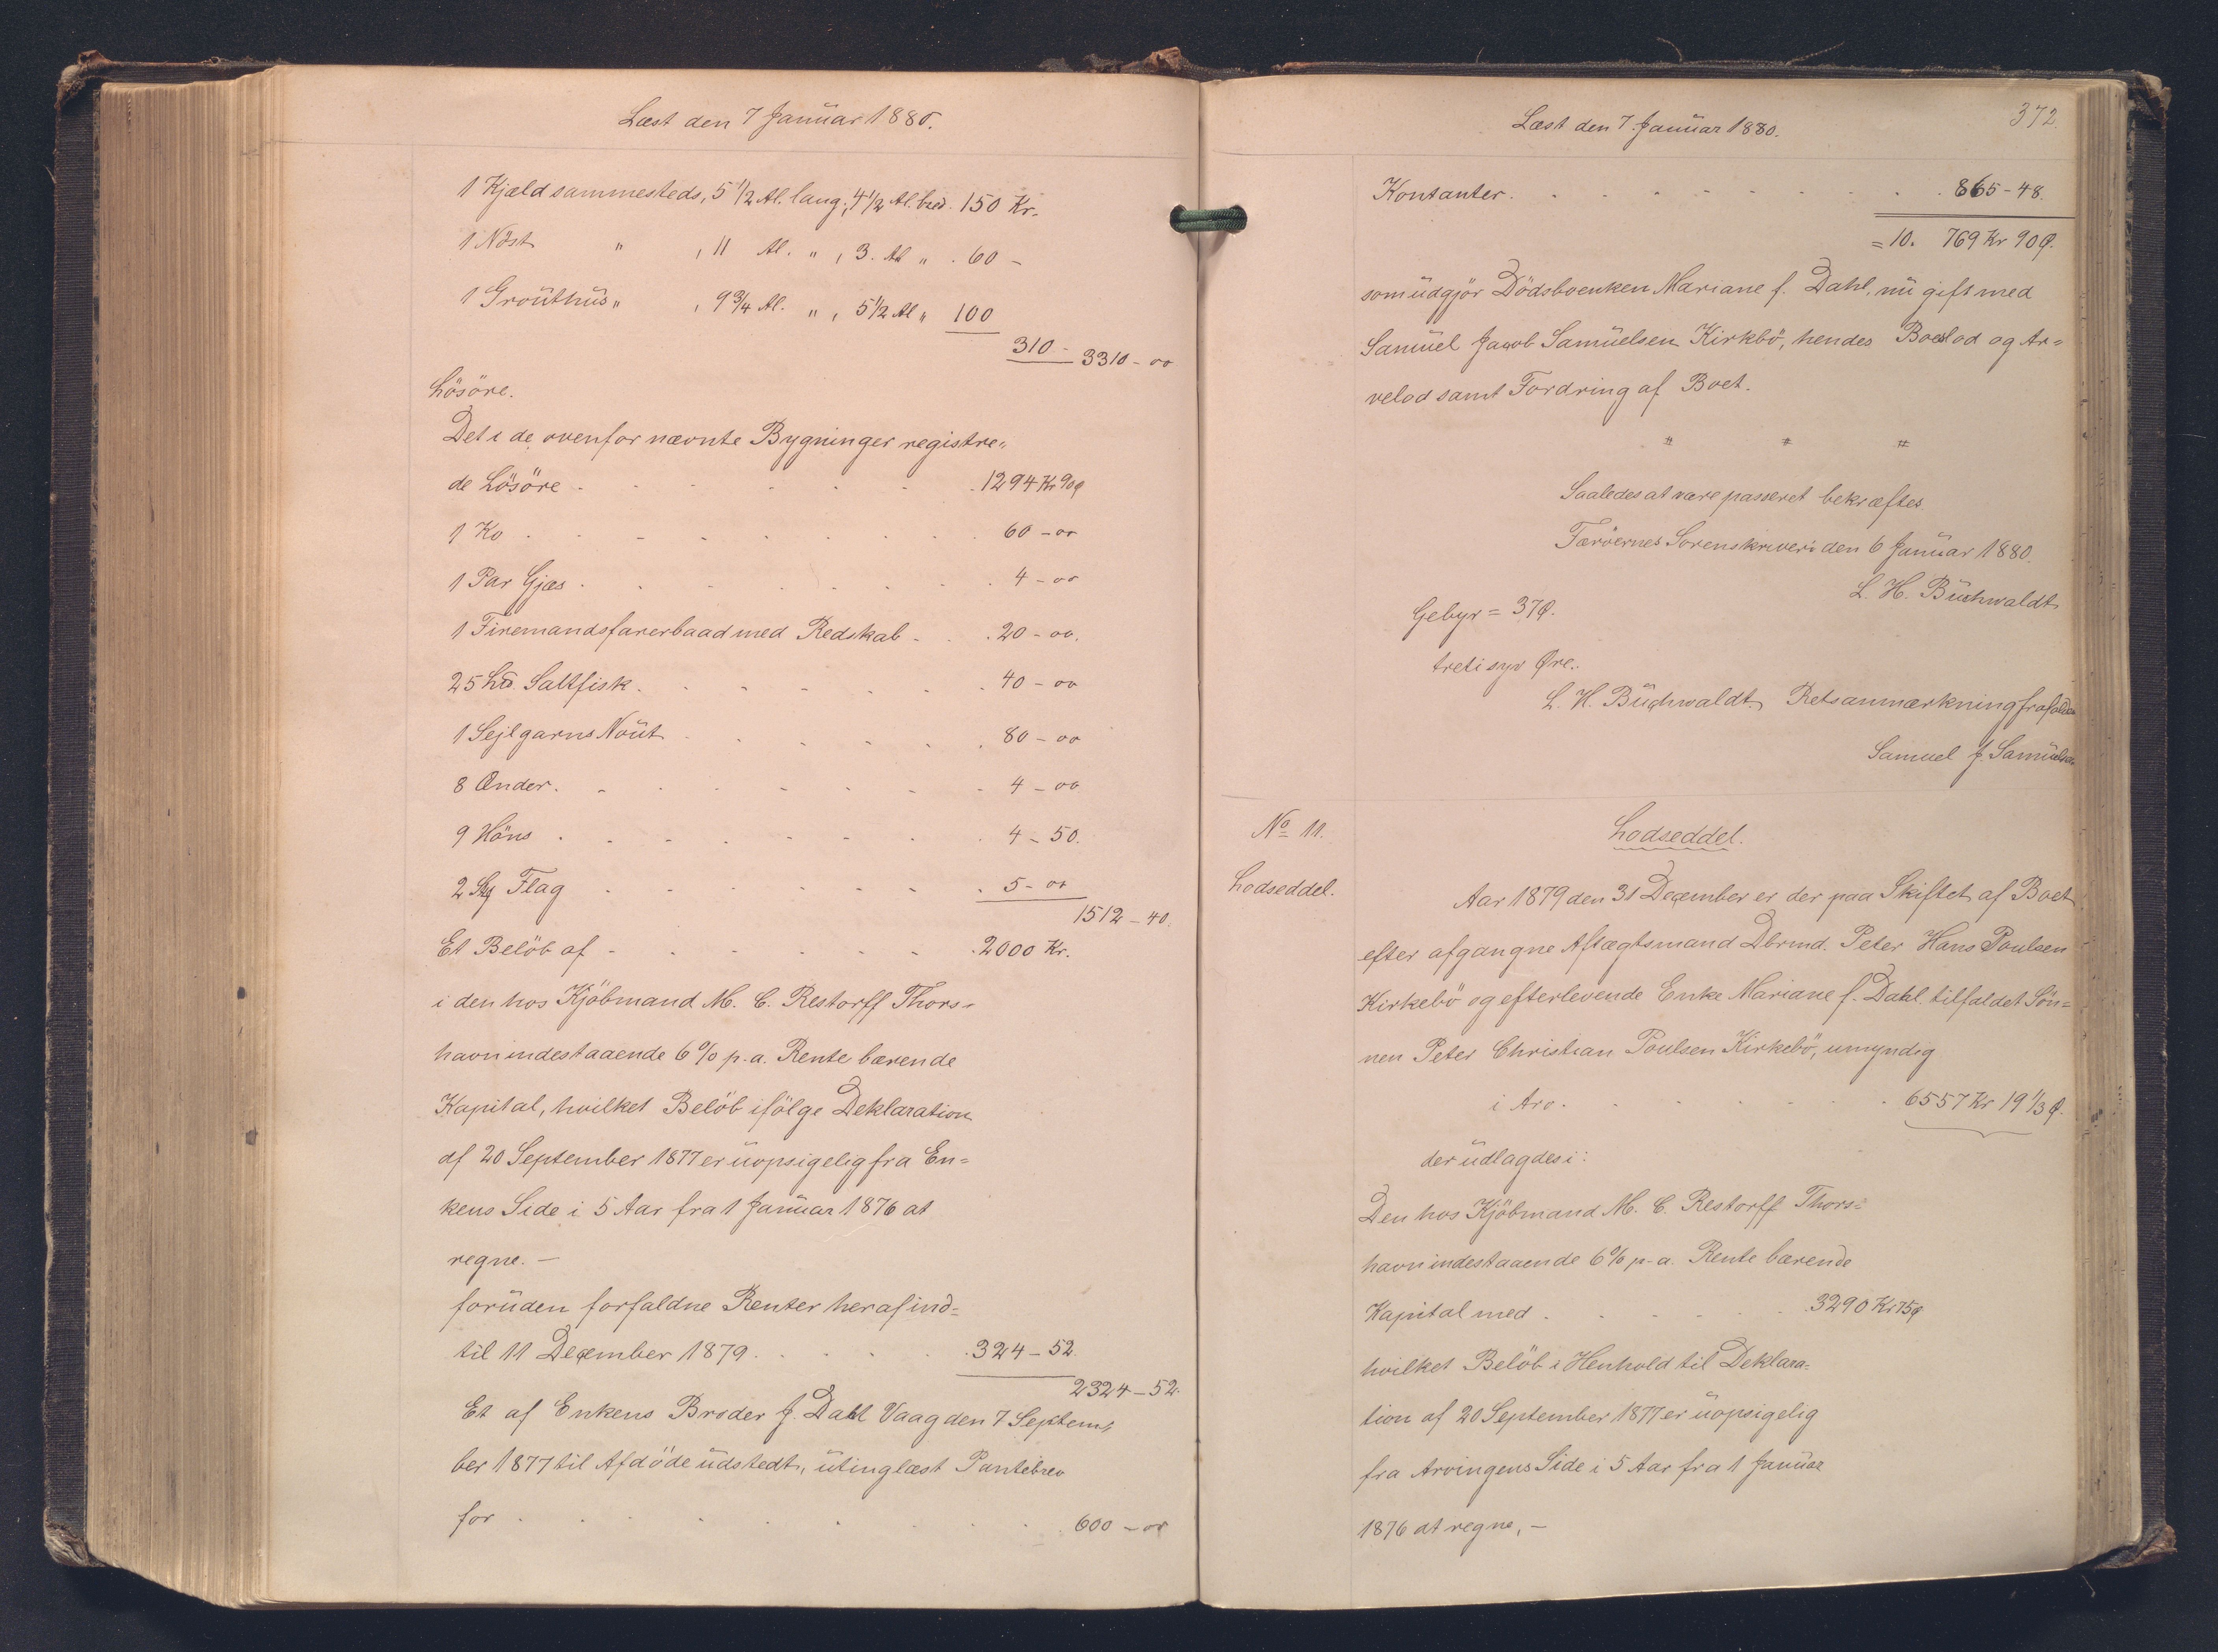 Læst den 7 Januar 1880.
1 Kjæld sammesteds, 5 1/2 Al. lang, 4 1/2 Al. bred. 150 Kr.
1 Nöst " , 11 Al. " , 3. Al " . 60 -
1 Grouthus " , 9 3/4 Al. " , 5 1/2 Al " 100
310 - 3310 - oo
Lösöre.
Det i de ovenfor nævnte Bygninger registre„
de Lösöre . . . . . . 1294 Kr 90 Ø
1 Ko . . . . . . . . 60 - oo
1 Par Gjæs . . . . . . 4 - oo
1 Firemandsfarerbaad med Redskab . . 20 - oo.
25 Ld Saltfisk . . . . . . 40 - oo
1 Sejlgarns Nout . . . . . 80 - oo
8 Ænder . . . . . . . 4 - oo
9 Höns . . . . . . . 4 - 50.
2 Flag . . . . . . 5 - oo
1512 - 40.
Et Belöb af . . . . . . 2000 Kr.
i den hos Kjöbmand M. C. Restorff Thors=
havn indestaaende 6% p. a. Rente bærende
Kapital, hvilket Belöb ifölge Deklaration
af 20 September 1877 er uopsigelig fra En=
kens Side i 5 Aar fra 1 Januar 1876 at
regne. -
foruden forfaldne Renter heraf ind=
til 11 December 1879 . . . . . 324 - 52.
2324 - 52.
Et af Enkens Broder J. Dahl Vaag den 7 Septem„
ber 1877 til Afdöde udstedt, utinglæst Pantebrev
for . . . . . . . . 600 - oo
Læst den 7. Januar 1880.
372.
Kontanter . . . . . . . . 865 - 48.
= 10. 769 Kr 90 Ø.
som udgjör Dödsboenken Mariane f. Dahl, nu gift med
Samuel Jacob Samuelsen Kirkbö, hendes Boeslod og Ar=
velod samt Fordring af Boet.
# # #
Saaledes at være passeret bekræftes.
Færöernes Sorenskriveri den 6 Januar 1880.
L. H. Buchwaldt
Gebyr = 37 Ø.
tretisyv Øre.
L. H. Buchwaldt. Retsanmærkning frafalden
Samuel J. Samuelsen
No 11.
Lodseddel.
Lodseddel.
Aar 1879 den 31 December er der paa Skiftet af Boet
efter afgangne Aftægtsmand Dbrmd. Peter Hans Poulsen
Kirkebö og efterlevende Enke Mariane f. Dahl tilfaldet Sön=
nen Peter Christian Poulsen Kirkebö, umyndig
i Arv . . . . . . . 6557 Kr 19 1/3 Ø.
der udlagdes i:
Den hos Kjöbmand M. C. Restorff Thors=
havn indestaaende 6% p. a. Rente bærende
Kapital med . . . . . 3290 Kr 75 Ø
hvilket Belöb i Henhold til Deklara=
tion af 20 September 1877 er uopsigelig
fra Arvingens Side i 5 Aar fra 1 Januar
1876 at regne, -